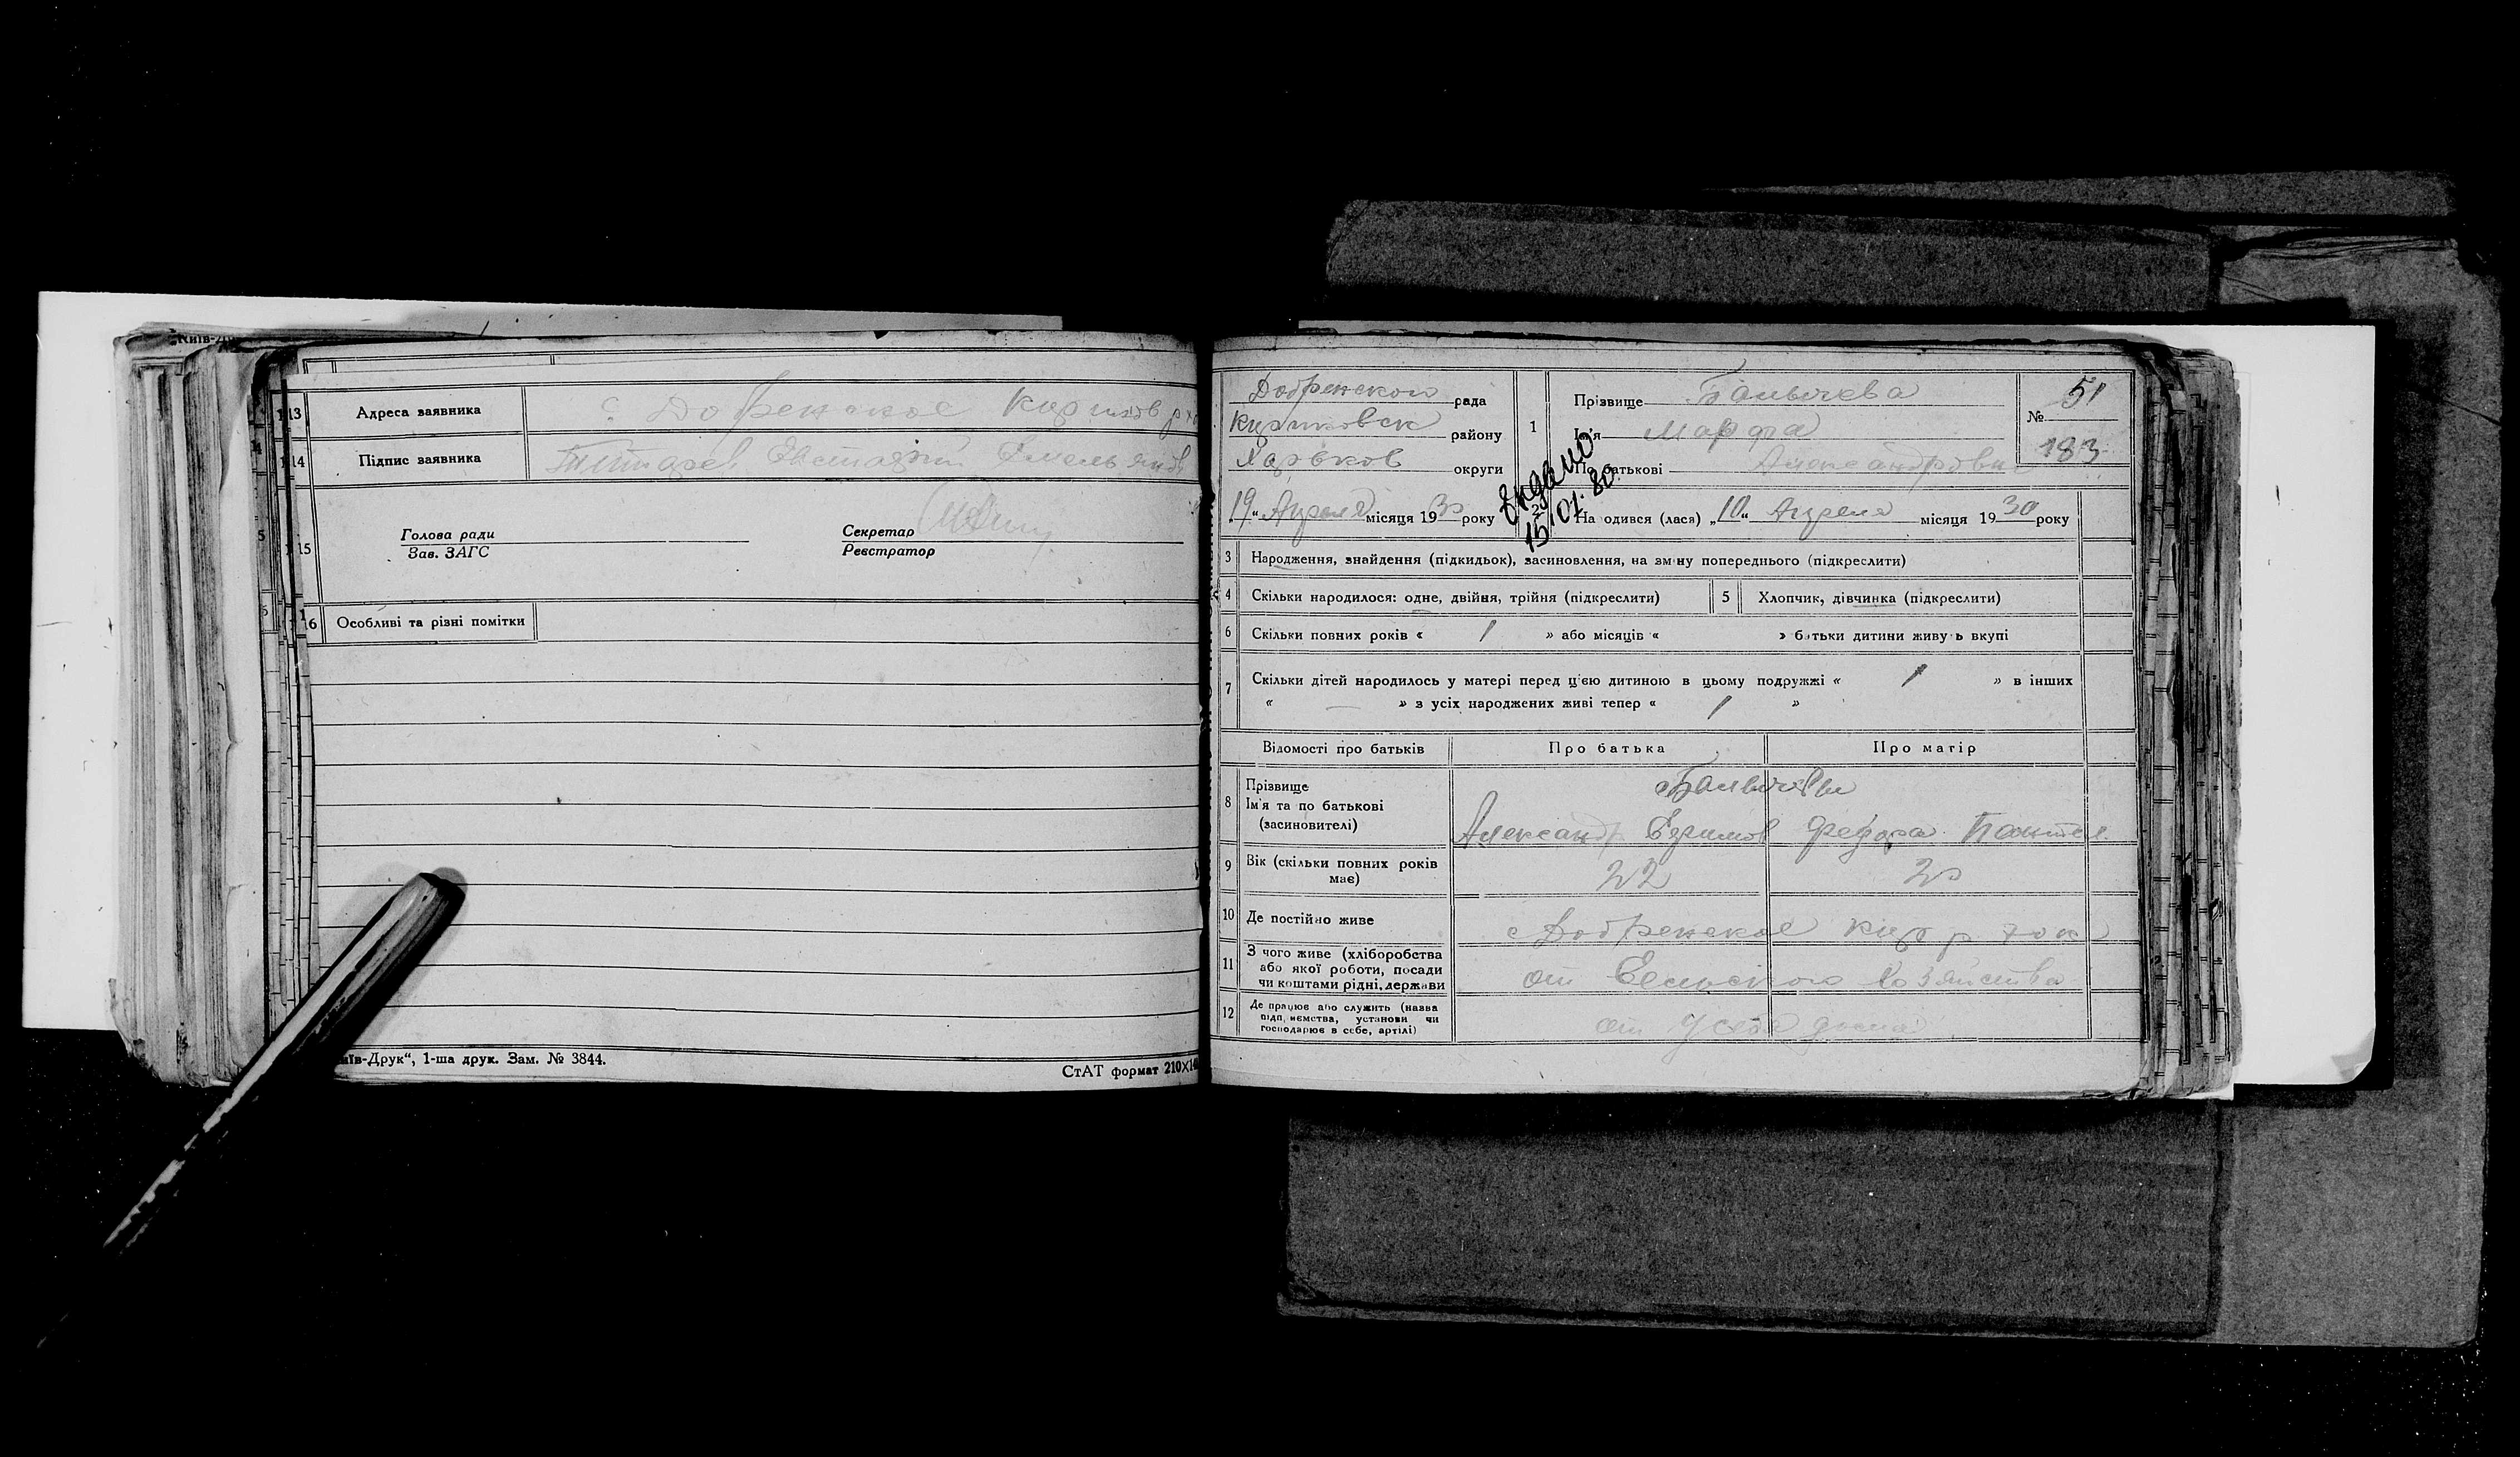 Київ-Д
13 Адреса заявника с Добренское
14 Підпис заявника Титарев
15 Голова ради Секретар
Зав. ЗАГС Реєстратор
16 Особливі та різні помітки
иїв-Друк“, 1-ша друк. Зам. № 3844.
СтАТ формат 210×1
Добренской рада
району
Харьков округи
„19“ Апреля місяця 1930 року
видано
15.01.80.
1 Прізвище
Ім'я Марфа
По батькові Александровна
№ 51
183
2 Народився (лася) „10“ Апреля місяця 1930 року
3 Народження, знайдення (підкидьок), засиновлення, на зміну попереднього (підкреслити)
4 Скільки народилося: одне, двійня, трійня (підкреслити) 5 Хлопчик, дівчинка (підкреслити)
6 Скільки повних років « 1 » або місяців « » батьки дитини живуть вкупі
7 Скільки дітей народилось у матері перед цією дитиною в цьому подружжі « 1 » в інших
« — » з усіх народжених живі тепер « 1 »
Відомості про батьків Про батька Про матір
8 Прізвище
Ім'я та по батькові
(засиновителі)
Александр
9 Вік (скільки повних років
має) 22 20
10 Де постійно живе с Добренское
11 З чого живе (хліборобства
або якої роботи, посади
чи коштами рідні, держави
от Сельского Хозяйства
12 Де працює або служить (назва
підприємства, установи чи
господарює в себе, артілі)